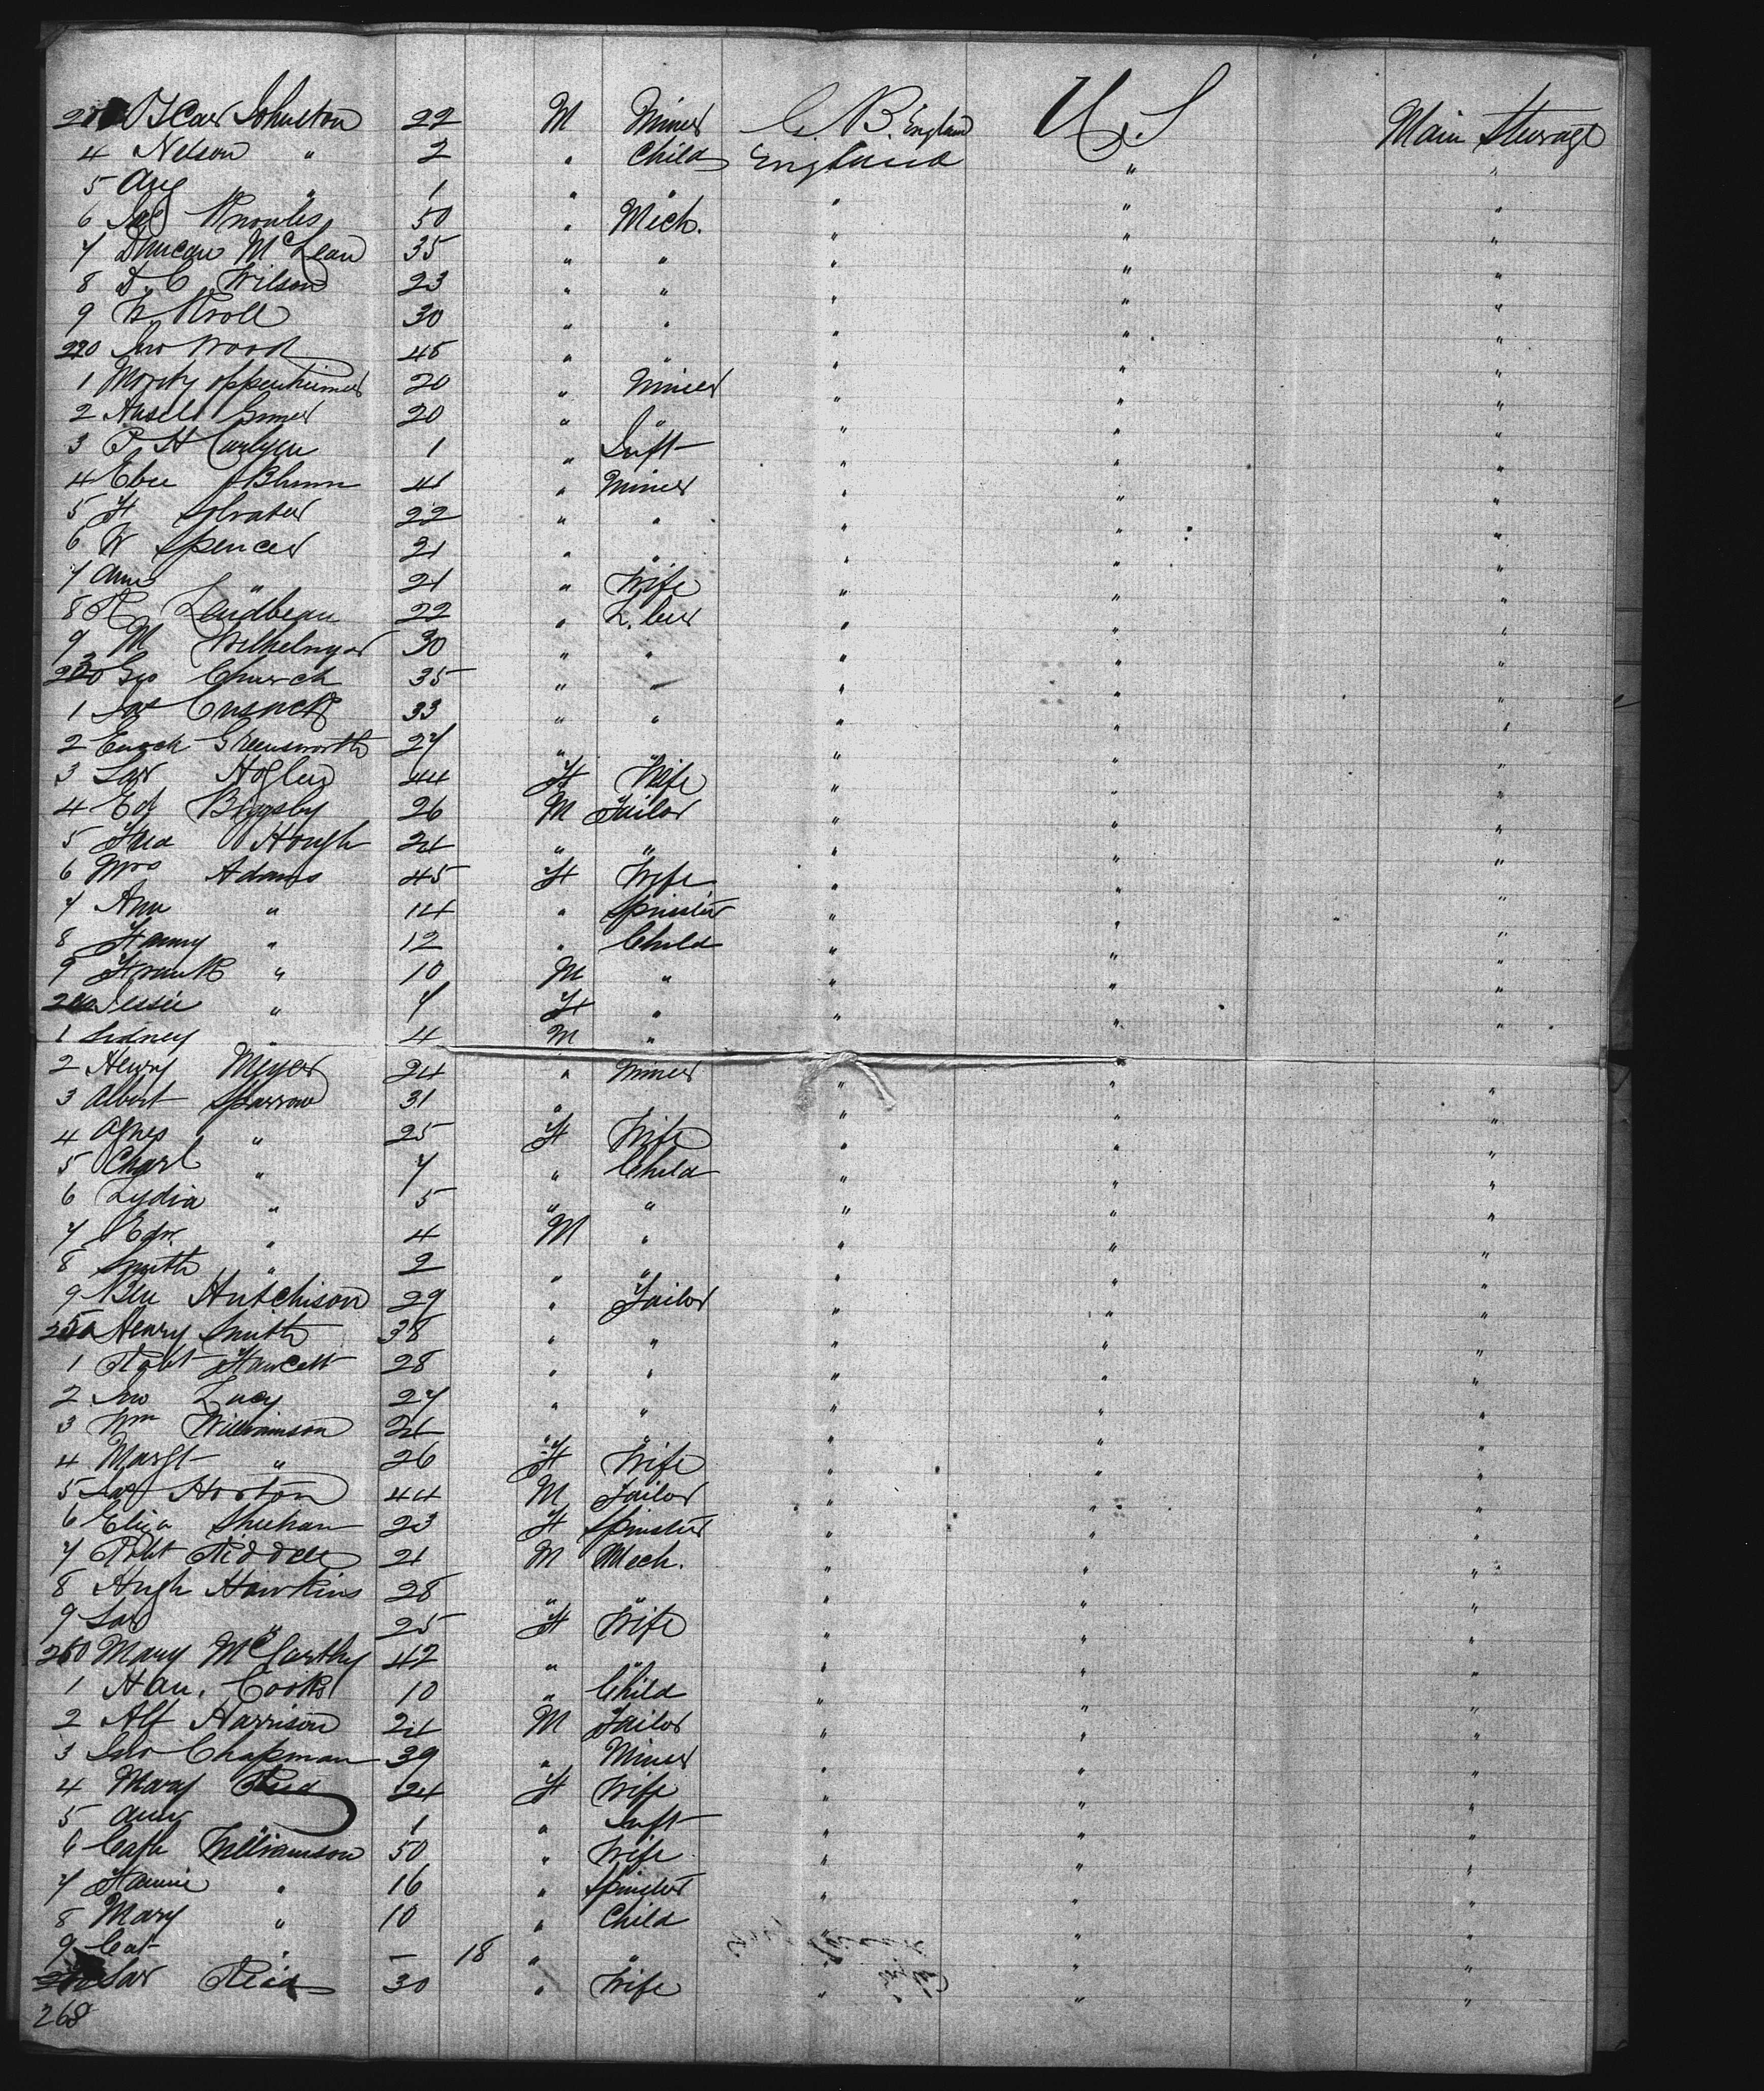 Oscar Johnston 22 M Miner G. B. England U S Main Steerage
4 Nelson " 2 " Child England " "
5 Aug " 1 " " " " "
6 Jas Knowles 50 " Mech. " " "
7 Duncan McLean 35 " " " " "
8 D. C. Wilson 23 " " " " "
9 W. Kroll 30 " " " " "
220 Jno Wood 45 " " " " "
1 Moritz Oppenheimer 20 " Miner " " "
2 20 " " " " "
3 P. H. 1 " Inft " " "
4 41 " Miner " " "
5 H 22 " " " " "
6 W Spencer 21 " " " " "
7 Ann " 21 " Wife " " "
8 R Lindbeau 22 " " " "
9 M 30 " " " " "
230 Geo Church 35 " " " " "
1 Jas Cusack 33 " " " " "
2 Enoch Greensworth 27 " " " "
3 Sar 44 F Wife " " "
4 Ed Bigsby 26 M Tailor " " "
5 Hough 21 " " " " "
6 Mrs Adams 45 F Wife " " "
7 Ann " 14 " Spinster " " "
8 Fanny " 12 " Child " " "
9 Frank " 10 M " " " "
240 Jessie " 7 F " " " "
1 Sidney " 4 M " "
2 Henry Meyer 24 " Miner " " "
3 Albert Sparrow 31 " " " " "
4 Agnes " 25 F Wife " " "
5 Charl " 7 " Child " " "
6 Lydia " 5 " " " " "
7 Edw. " 4 M " " " "
8 Smith " 2 " " " " "
9 Ben Hutchison 29 " Tailor " " "
250 Henry Smith 38 " " " " "
1 Robt Fawcett 28 " " " " "
2 Jno Lucy 27 " " " " "
3 Wm Williamson 21 " " " " "
4 Margt " 26 F Wife " " "
5 Jas Horton 44 M Tailor " " "
6 Eliza Sheehan 23 F Spinster " " "
7 Robt Riddell 21 M Mech. " " "
8 Hugh Hawkins 28 " " " " "
9 Sar " 25 F Wife " " "
260 Mary McCarthy 42 " " " " "
1 Han. Cooks 10 " Child " " "
2 Alf Harrison 21 M Tailor " " "
3 Jno Chapman 39 " Miner " " "
4 Mary Reid 24 F Wife " " "
5 Amy 1 " Inft " " "
6 Cath Williamson 50 " Wife " " "
7 Fannie " 16 " Spinster " " "
8 Mary " 10 " Child " " "
9 Cat " — 18 " " " " "
Sar Reid 30 " Wife " " "
268